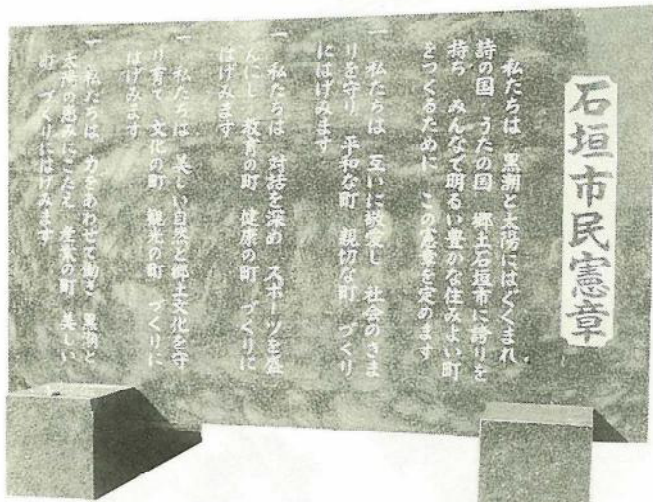 石垣市民憲章
私たちは 黒潮と太陽にはぐくまれ
詩の国 うたの国 郷土石垣市に誇りを
持ち みんなで明るい豊かな住みよい町
をつくるために この憲章を定めます
一 私たちは 互いに敬愛し 社会のきま
りを守り 平和な町 親切な町 づくり
にはげみます
一 私たちは 対話を深め スポーツを盛
んにし 教育の町 健康の町 づくりに
はげみます
一 私たちは 美しい自然と郷土文化を守
り育て 文化の町 観光の町 づくりに
はげみます
一 私たちは 力をあわせて働き 黒潮と
太陽の恵みにこたえ 産業の町 美しい
町 づくりにはげみます